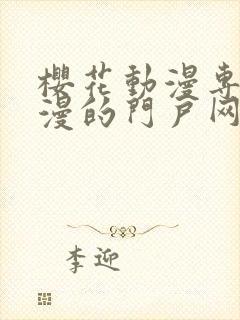 櫻花動漫專
漫的門戶网
李迎